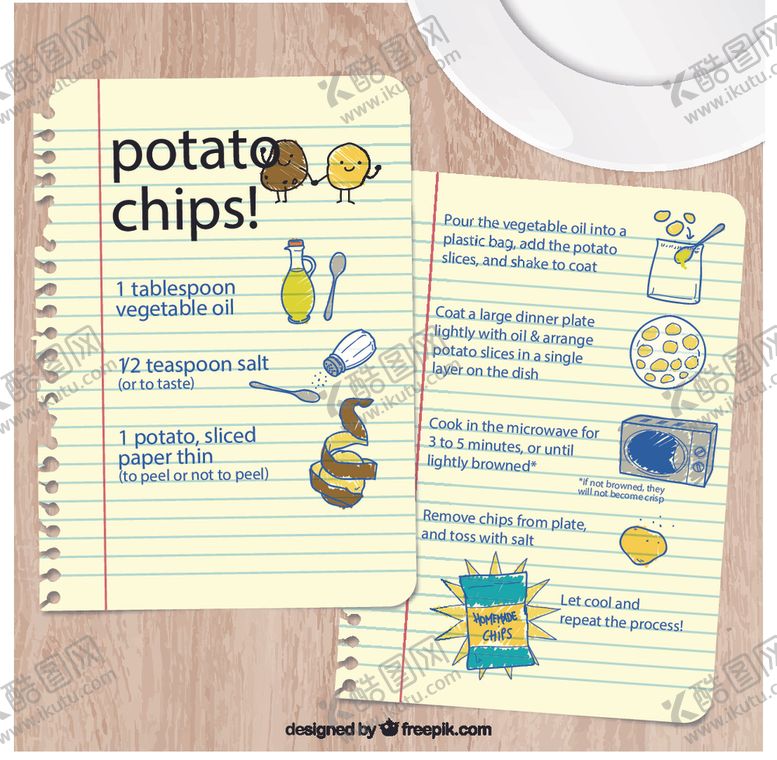 potato
chips!
1 tablespoon
vegetable oil
1/2 teaspoon salt
(or to taste)
1 potato, sliced
paper thin
(to peel or not to peel)
Pour the vegetable oil into a
plastic bag, add the potato
slices, and shake to coat
Coat a large dinner plate
lightly with oil & arrange
potato slices in a single
layer on the dish
Cook in the microwave for
3 to 5 minutes, or until
lightly browned*
*If not browned, they
will not become crisp
Remove chips from plate,
and toss with salt
HOMEMADE
CHIPS
Let cool and
repeat the process!
designed by freepik.com
酷图网
www.ikutu.com